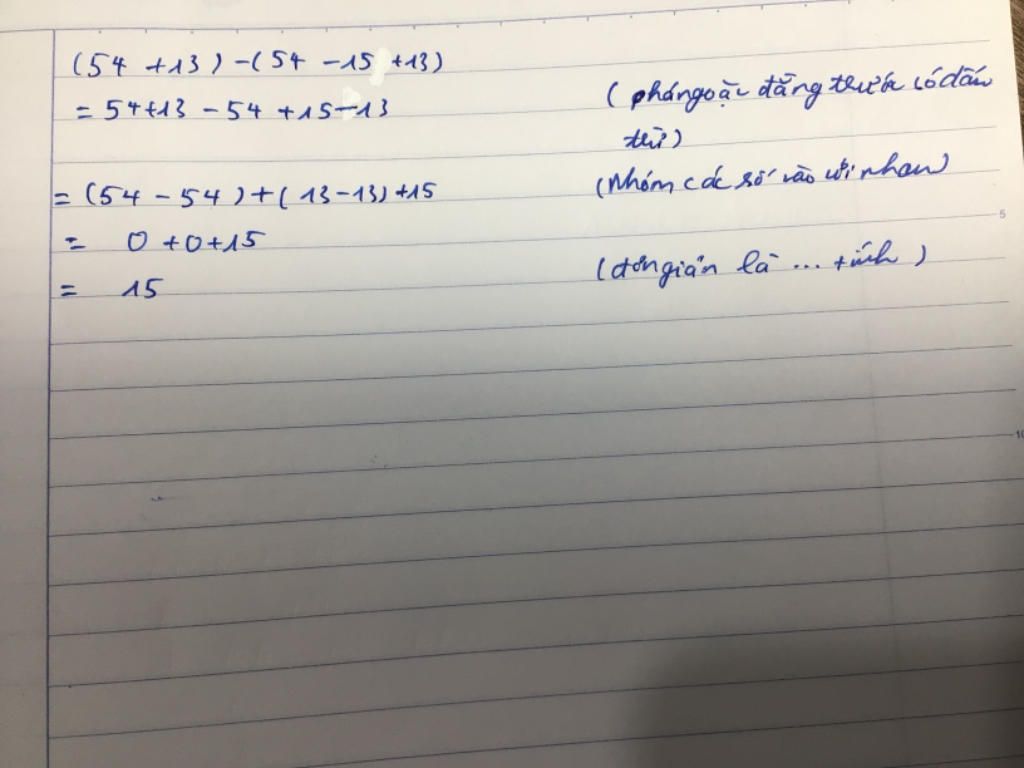 (54 +13) -(54 -15 +13)
= 54+13 - 54 +15-13
( phá ngoặc đằng trước có dấu
trừ)
= (54 - 54) +( 13-13) +15
(Nhóm các số vào với nhau)
= 0 +0+15
= 15
(đơn giản là ... tính )
5
10